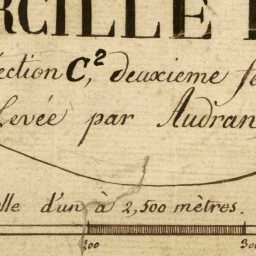 RCILLE
ection C², deuxieme fe
Levée par Audran
lle d'un à 2,500 mètres.
200 300